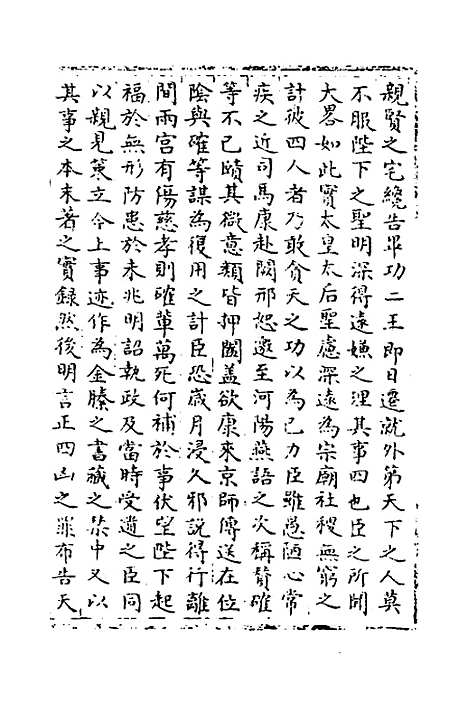 親賢之宅纔告畢功二王即日遷就外第天下之人莫
不服陛下之聖明深得遠嫌之理其事四也臣之所聞
大畧如此實太皇太后聖慮深遠為宗廟社稷無窮之
計彼四人者乃敢貪天之功以為己力臣雖愚陋心常
疾之近司馬康赴闕邢恕邀至河陽燕語之次稱贊確
等不已賾其微意類皆押闔盖欲康來京師傳送在位
陰與確等謀為復用之計臣恐歲月浸久邪說得行離
間兩宮有傷慈孝則確輩萬死何補於事伏望陛下起
福於無形防患於未兆明詔執政及當時受遺之臣同
以親見策立今上事迹作為金縢之書藏之禁中又以
其事之本末著之實録然後明言正四凶之罪布告天